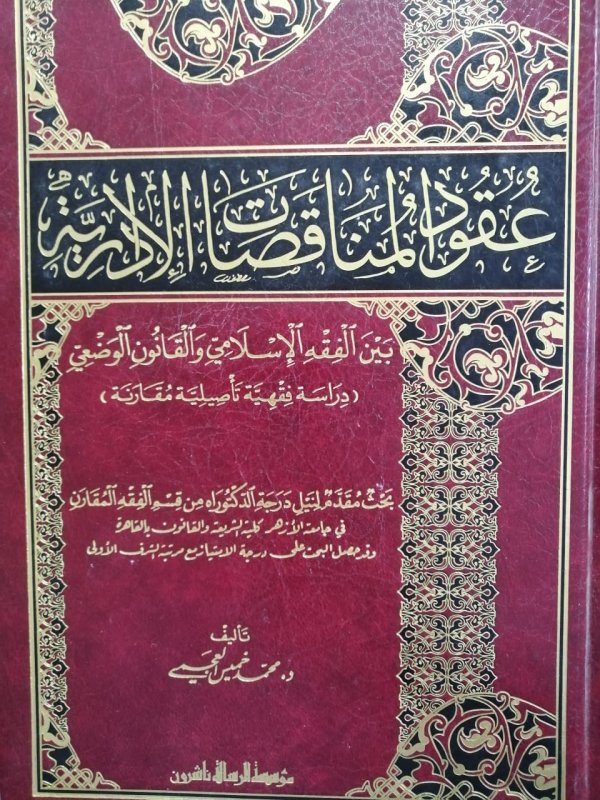 عُقُود المُنَاقَصَات الإِدَارِيَّة
بَيْنَ الْفِقْهِ الإِسْلَامِيِّ وَالْقَانُونِ الْوَضْعِيِّ
(دِرَاسَة فِقْهِيَّة تَأْصِيلِيَّة مُقَارَنَة)
بَحْثٌ مُقَدَّمٌ لِنَيْلِ دَرَجَةِ الدُّكْتُورَاه مِن قِسْمِ الْفِقْهِ الْمُقَارَنِ
في جامعة الأزهر كلية الشريعة والقانون بالقاهرة
وقد حصل البحث على درجة الامتياز مع مرتبة الشرف الأولى
تأليف
د. محمد خميس العجمي
مؤسسة الرسالة ناشرون